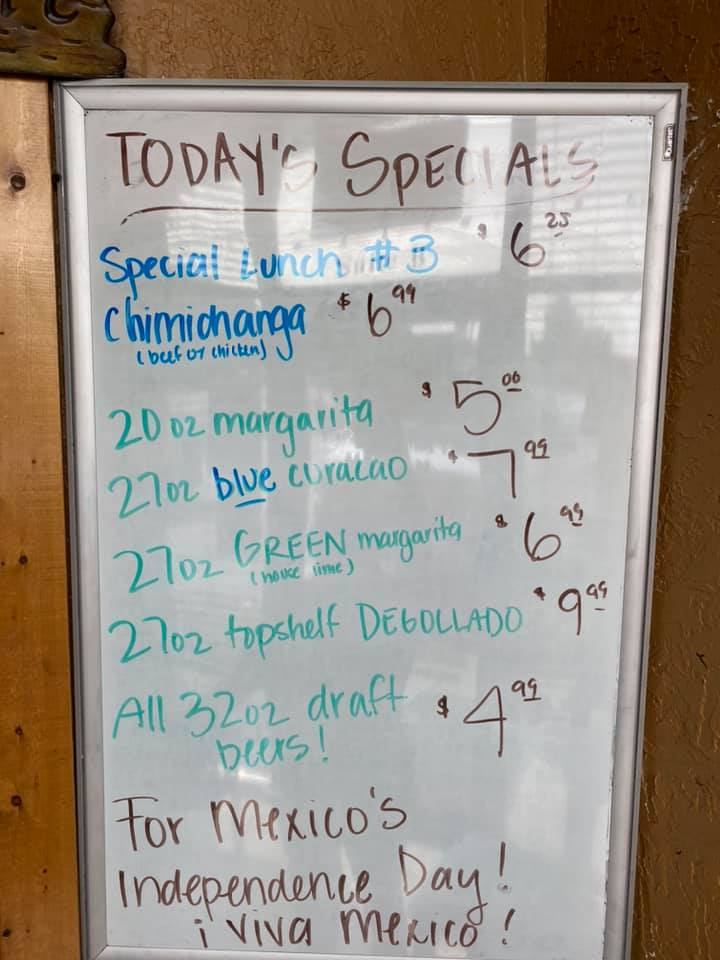 TODAY'S SPECIALS
Special Lunch #3 $6.25
Chimichanga $6.99
(beef or chicken)
20oz margarita $5.00
27oz blue curacao $7.99
27oz GREEN margarita $6.99
(house lime)
27oz topshelf DEGOLLADO $9.99
All 32oz draft $4.99
beers!
For Mexico's
Independence Day!
¡Viva Mexico!